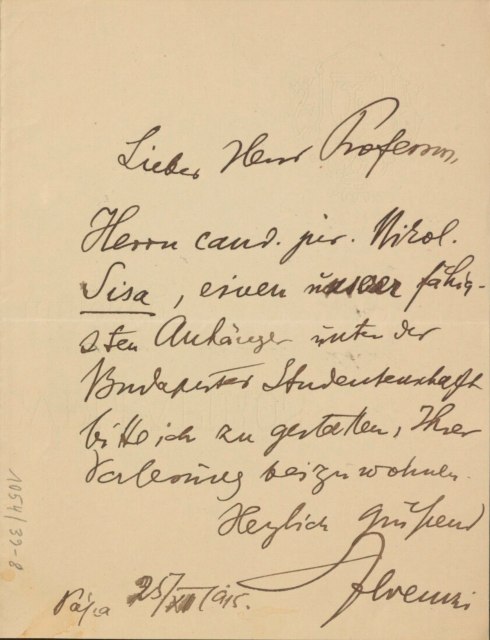 Lieber Herr Professor,
Herrn cand. jur. Nikol.
Sisa, einen unser fähig-
sten Anhänger unter der
Budapester Studentenschaft
bitte ich zu gestatten, Ihrer
Vorlesung beizuwohnen.
Herzlich grüßend
Ferenczi
Pápa 25/XII 1915.
1054/39-8